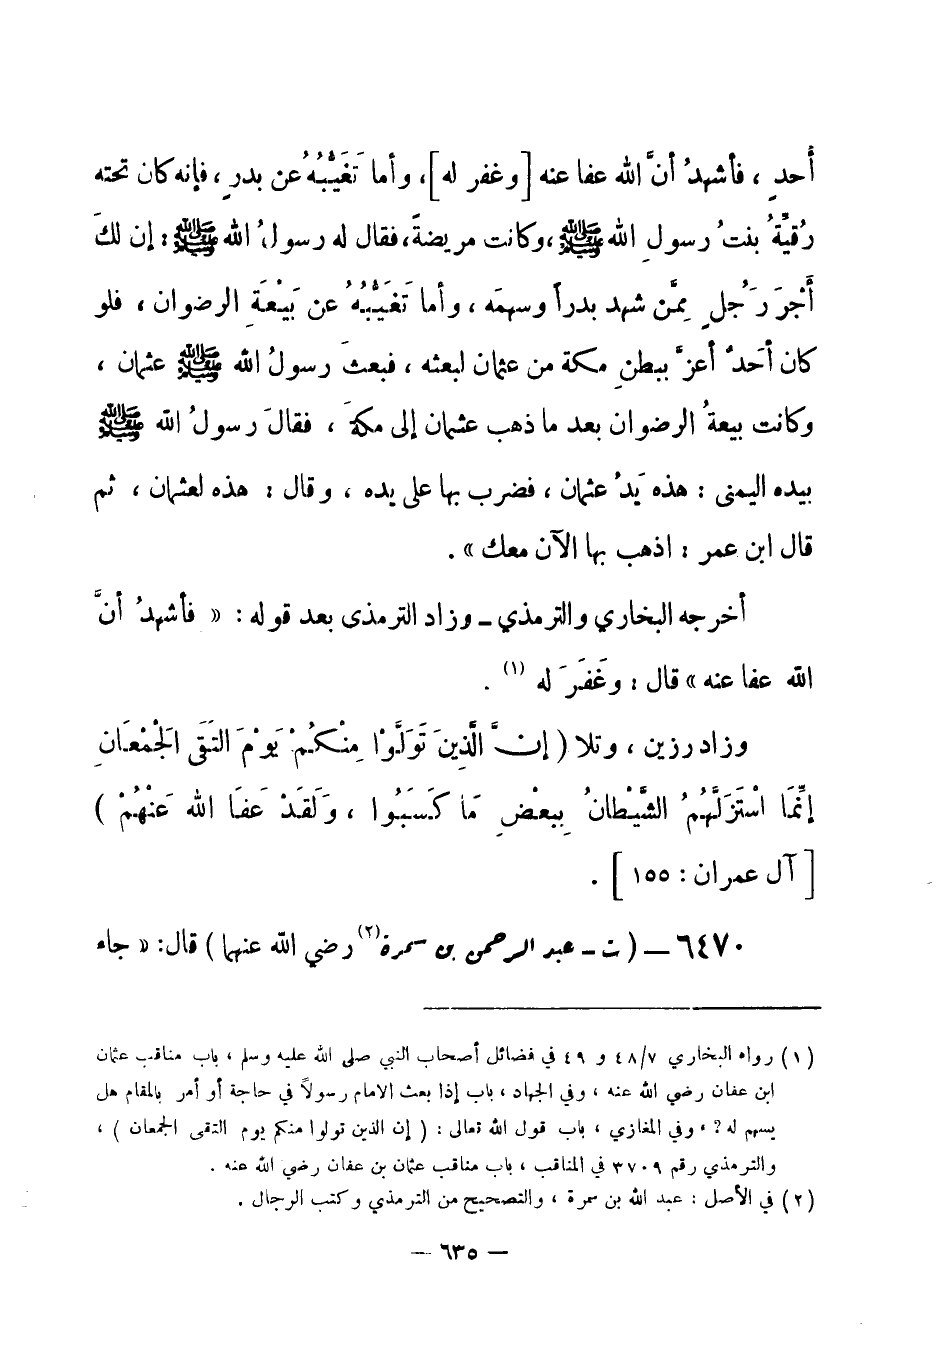 أُحدٍ ، فأشهدُ أنَّ الله عفا عنه [وغفر له]، وأما تَغَيُّبُهُ عن بدرٍ ، فإنه كان تحته
رُقيَّةُ بنتُ رسولِ الله ﷺ ، وكانت مريضةً ، فقال له رسولُ الله ﷺ : إن لكَ
أَجْرَ رَجُلٍ مِمَّن شهد بدراً وسهمَه ، وأما تَغَيُّبُهُ عن بَيْعَةِ الرضوان ، فلو
كان أحَدٌ أعزَّ ببطنِ مكة من عثمان لبعثه ، فبعثَ رسولُ الله ﷺ عثمان ،
وكانت بيعةُ الرضوان بعد ما ذهب عثمان إلى مكةَ ، فقالَ رسولُ الله ﷺ
بيده اليمنى : هذه يَدُ عثمان ، فضرب بها على يده ، وقال : هذه لعثمان ، ثم
قال ابن عمر : اذهب بها الآن معك » .
أخرجه البخاري والترمذي ـ وزاد الترمذى بعد قوله : « فأشهدُ أنَّ
الله عفا عنه » قال : وغَفَرَ له (١) .
وزاد رزين ، وتلا ( إنَّ الَّذِينَ تَوَلَّوْا مِنْكُمْ يَوْمَ التَقَى الْجَمْعَانِ
إنَّمَا اسْتَزَلَّهُمُ الشَّيْطَانُ بِبعْضِ مَا كَسَبُوا ، وَلَقَدْ عَفَا الله عَنْهُمْ )
[ آل عمران : ١٥٥ ] .
٦٤٧٠ ـ ( ت ـ عبد الرحمن بن سمرة (٢) رضي الله عنهما ) قال : « جاء
(١) رواه البخاري ٤٨/٧ و ٤٩ في فضائل أصحاب النبي صلى الله عليه وسلم ، باب مناقب عثمان
ابن عفان رضي الله عنه ، وفي الجهاد ، باب إذا بعث الامام رسولاً في حاجة أو أمر بالمقام هل
يسهم له؟ ، وفي المغازي ، باب قول الله تعالى : ( إن الذين تولوا منكم يوم التقى الجمعان ) ،
والترمذي رقم ٣٧٠٩ في المناقب ، باب مناقب عثمان بن عفان رضي الله عنه .
(٢) في الأصل : عبد الله بن سمرة ، والتصحيح من الترمذي وكتب الرجال .
— ٦٣٥ —